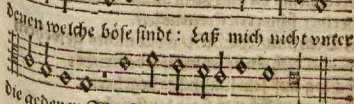 denen welche böse sindt: Laß mich nicht vnter
die